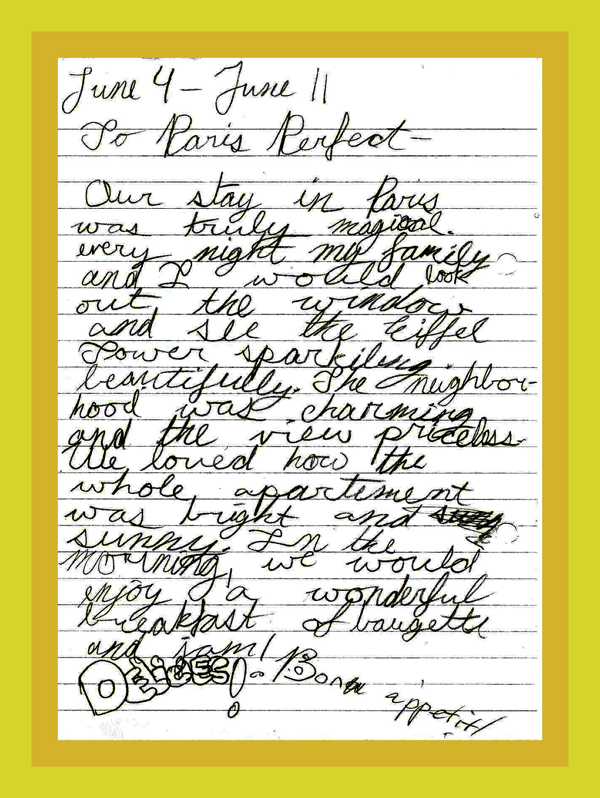 June 4 - June 11
To Paris Perfect-
Our stay in Paris
was truly magical.
every night my family
and I would look
out the window
and see the Eiffel
Tower sparkiling.
beautifully. The neighbor-
hood was charming
and the view priceless.
We loved how the
whole apartement
was bright and
sunny. In the
morning, we would
enjoy a wonderful
breakfast of baugette
and jam!
Delices! Bon
appetit!